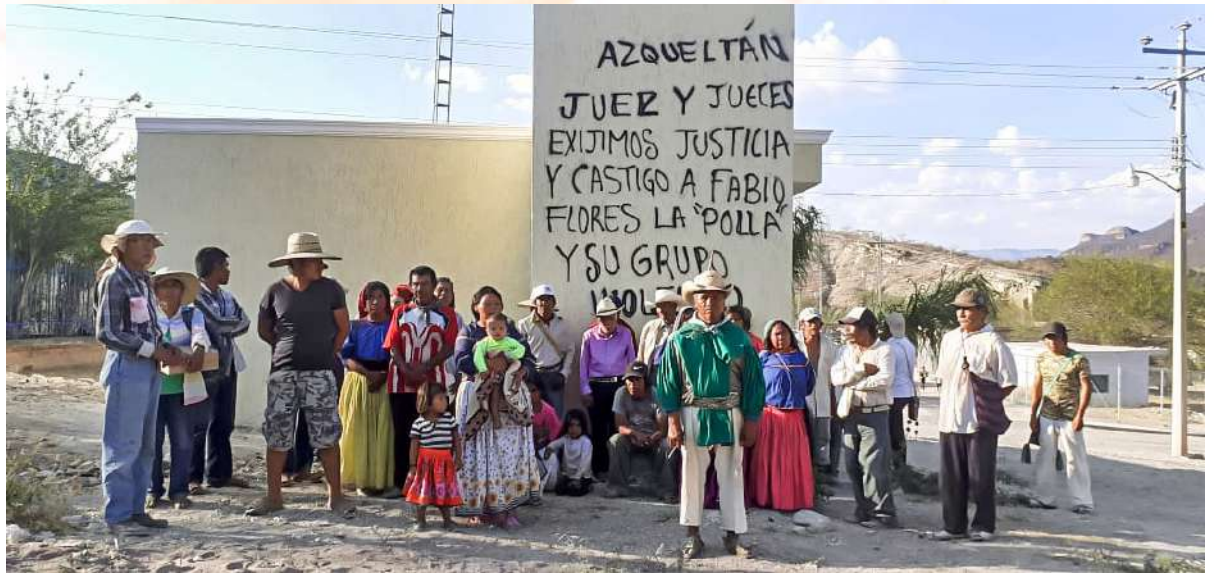 AZQUELTÁN
JUEZ Y JUECES
EXIJIMOS JUSTICIA
Y CASTIGO A FABIO
FLORES LA "POLLA"
Y SU GRUPO